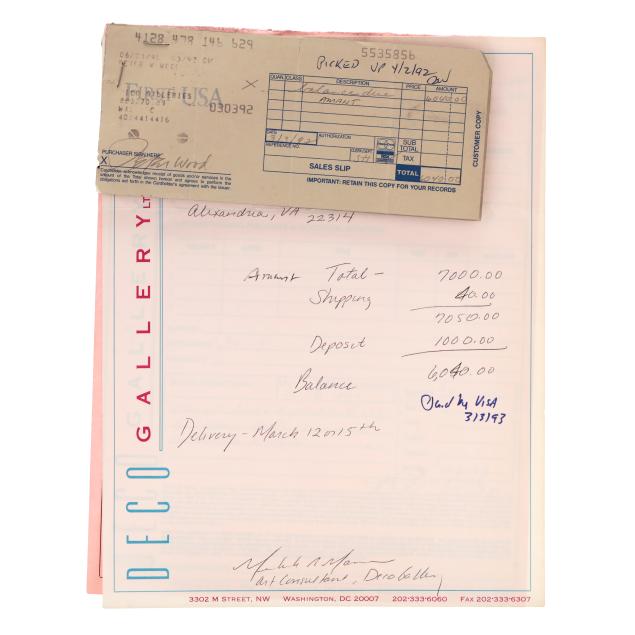 5535856
PICKED UP 4/2/92
QUAN. CLASS DESCRIPTION PRICE AMOUNT
balance due 6040.00
First USA
030392
DATE 3/3/92 AUTHORIZATION SUB TOTAL
REFERENCE NO. TAX
PURCHASER SIGN HERE
X Wood
SALES SLIP TOTAL 6040.00
Cardholder acknowledges receipt of goods and/or services in the
amount of the Total shown hereon and agrees to perform the
obligations set forth in the Cardholder's agreement with the issuer
IMPORTANT: RETAIN THIS COPY FOR YOUR RECORDS
CUSTOMER COPY
Alexandria, VA 22314
Amount Total - 7000.00
Shipping 40.00
7050.00
Deposit 1000.00
Balance 6,040.00
Paid by VISA
3/3/93
Delivery - March 12 or 15th
DECO GALLERY LTD
Art Consultant, Deco Gallery
3302 M STREET, NW WASHINGTON, DC 20007 202-333-6060 FAX 202-333-6307